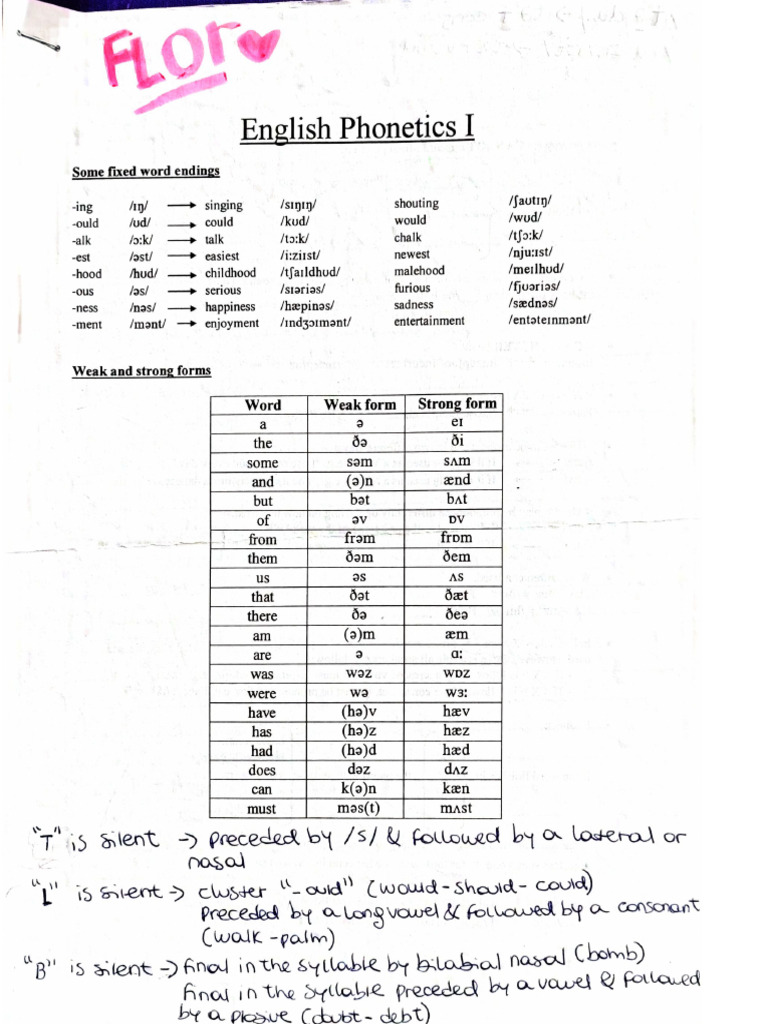 FLOr
English Phonetics I
Some fixed word endings
-ing /ɪŋ/ → singing /sɪŋɪŋ/ shouting /ʃaʊtɪŋ/
-ould /ʊd/ → could /kʊd/ would /wʊd/
-alk /ɔ:k/ → talk /tɔ:k/ chalk /tʃɔ:k/
-est /əst/ → easiest /i:ziɪst/ newest /nju:ɪst/
-hood /hʊd/ → childhood /tʃaɪldhʊd/ malehood /meɪlhʊd/
-ous /əs/ → serious /sɪəriəs/ furious /fjʊəriəs/
-ness /nəs/ → happiness /hæpinəs/ sadness /sædnəs/
-ment /mənt/ → enjoyment /ɪndʒɔɪmənt/ entertainment /entəteɪnmənt/
Weak and strong forms
Word Weak form Strong form
a ə eɪ
the ðə ði
some səm sʌm
and (ə)n ænd
but bət bʌt
of əv ɒv
from frəm frɒm
them ðəm ðem
us əs ʌs
that ðət ðæt
there ðə ðeə
am (ə)m æm
are ə ɑ:
was wəz wɒz
were wə wɜ:
have (hə)v hæv
has (hə)z hæz
had (hə)d hæd
does dəz dʌz
can k(ə)n kæn
must məs(t) mʌst
"T" is silent → preceded by /s/ & followed by a lateral or
nasal
"L" is silent → cluster "-ould" (would-should-could)
Preceded by a long vowel & followed by a consonant
(walk-palm)
"B" is silent → final in the syllable by bilabial nasal (bomb)
final in the syllable preceded by a vowel & followed
by a plosive (doubt-debt)